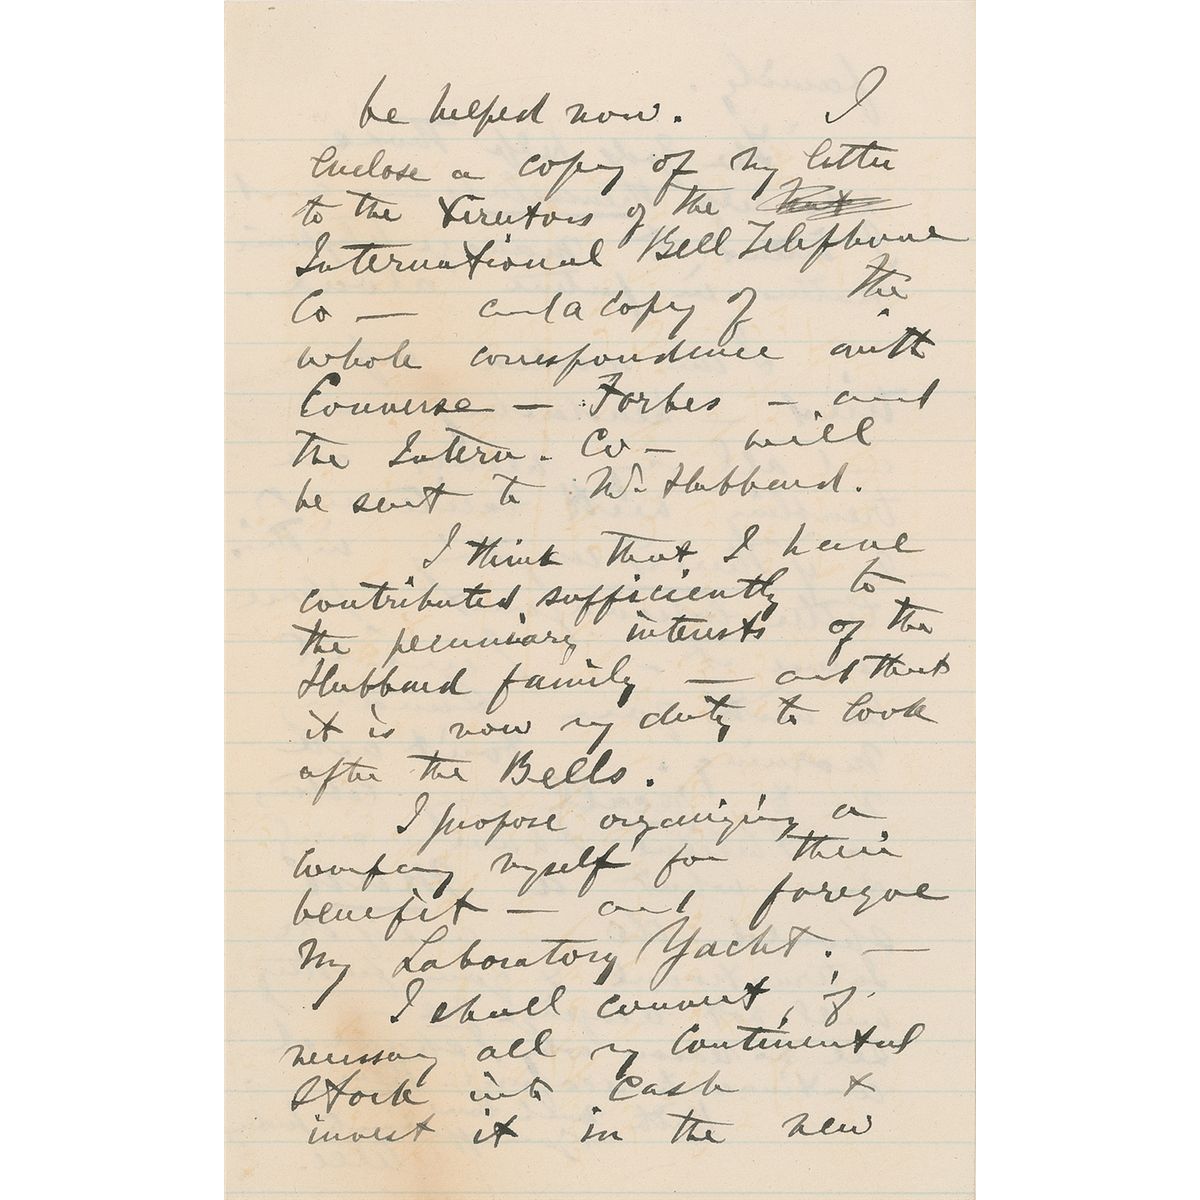 be helped now. I
enclose a copy of my letter
to the Directors of the
International Bell Telephone
Co — and a copy of the
whole correspondence with
Converse — Forbes — and
the Intern. Co — will
be sent to Mr. Hubbard.
I think that I have
contributed sufficiently to
the pecuniary interests of the
Hubbard family — and that
it is now my duty to look
after the Bells.
I propose organizing a
company myself for their
benefit — and foregoe
my Laboratory Yacht. —
I shall convert, if
necessary all my Continental
Stock into Cash &
invest it in the new